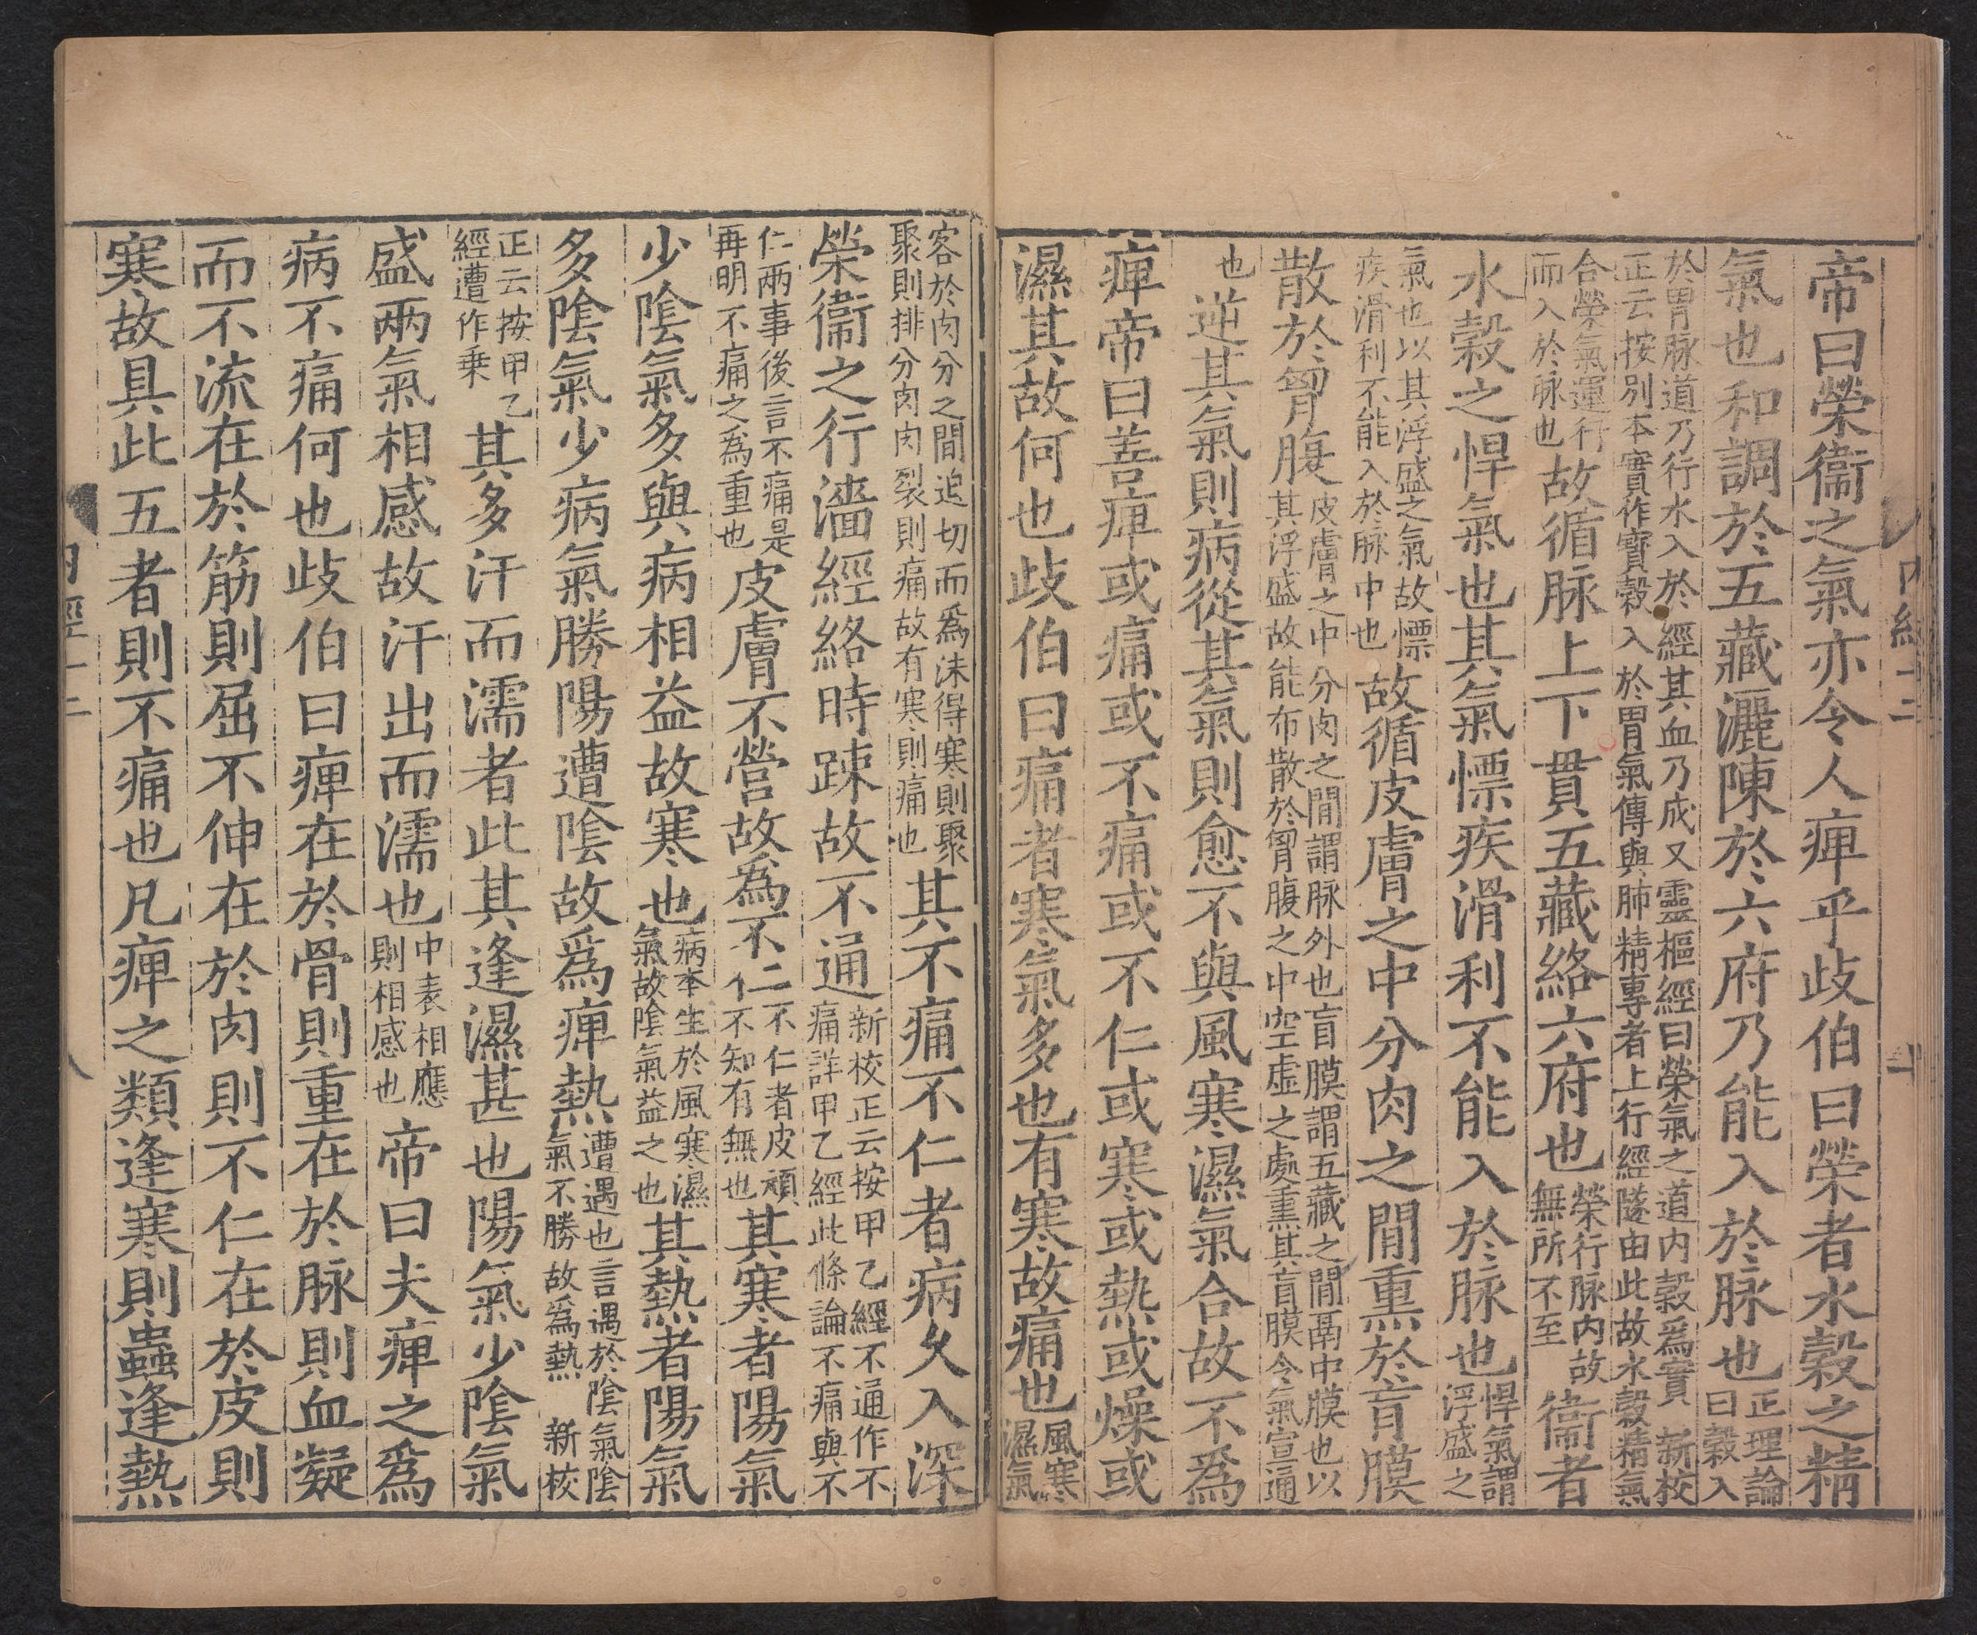 帝曰榮衞之氣亦令人痺乎歧伯曰榮者水穀之精
氣也和調於五藏灑陳於六府乃能入於脉也正理論曰穀入
於胃脉道乃行水入於經其血乃成又靈樞經曰榮氣之道内穀爲實 新校
正云按別本實作寶穀入於胃氣傳與肺精專者上行經隧由此故水穀精氣
合榮氣運行而入於脉也故循脉上下貫五藏絡六府也榮行脉内故無所不至衞者
水穀之悍氣也其氣慓疾滑利不能入於脉也悍氣謂浮盛之
氣也以其浮盛之氣故慓疾滑利不能入於脉中也故循皮膚之中分肉之間熏於肓膜
散於胷腹皮膚之中分肉之間謂脉外也肓膜謂五藏之間鬲中膜也以其浮盛故能布散於胷腹之中空虛之處熏其肓膜令氣宣通
也逆其氣則病從其氣則愈不與風寒濕氣合故不爲
痺帝曰善痺或痛或不痛或不仁或寒或熱或燥或
濕其故何也歧伯曰痛者寒氣多也有寒故痛也風寒濕氣
客於肉分之間迫切而爲沫得寒則聚聚則排分肉肉裂則痛故有寒則痛也其不痛不仁者病久入深
榮衞之行濇經絡時踈故不通新校正云按甲乙經不通作不痛詳甲乙經此條論不痛與不
仁兩事後言不痛是再明不痛之爲重也皮膚不營故爲不仁不仁者皮頑不知有無也其寒者陽氣
少陰氣多與病相益故寒也病本生於風寒濕氣故陰氣益之也其熱者陽氣
多陰氣少病氣勝陽遭陰故爲痺熱遭遇也言遇於陰氣陰氣不勝故爲熱 新校
正云按甲乙經遭作乗其多汗而濡者此其逢濕甚也陽氣少陰氣
盛兩氣相感故汗出而濡也中表相應則相感也帝曰夫痺之爲
病不痛何也歧伯曰痺在於骨則重在於脉則血凝
而不流在於筋則屈不伸在於肉則不仁在於皮則
寒故具此五者則不痛也凡痺之類逢寒則蟲逢熱
内經十二
八